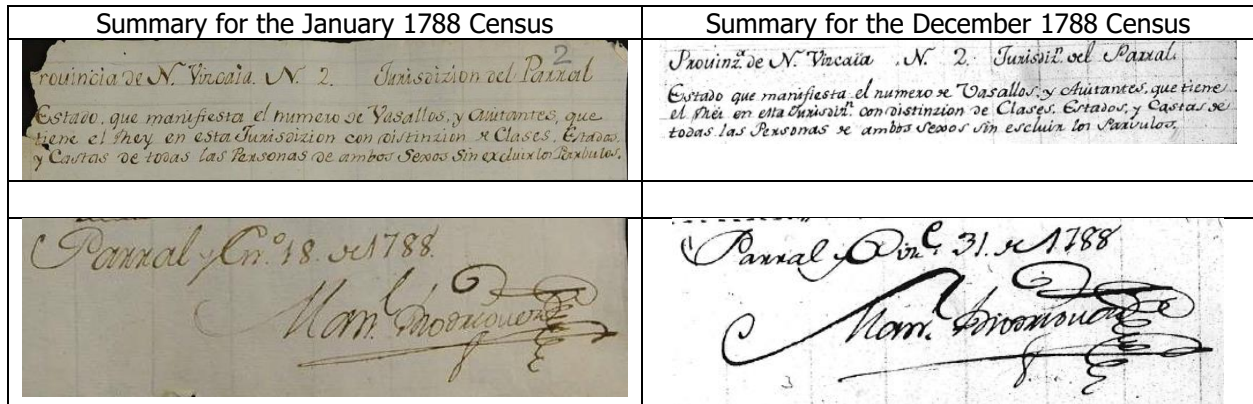 Summary for the January 1788 Census
Summary for the December 1788 Census
2
rouincia de N. Vizcaia. N. 2. Jurisdizion del Parral
Estado, que manifiesta el numero de Vasallos, y Auitantes, que
tiene el Rhey en esta Jurisdizion con distinzion de Clases, Estados,
y Castas de todas las Personas de ambos Sexos sin excluir los Parbulos.
Prouinz.ª de N. Vizcaia N. 2. Jurisdiz.n del Parral.
Estado que manifiesta el numero de Vasallos, y Auitantes, que tiene
el Rhei en esta Jurisdiz.n con distinzion de Clases, Estados, y Castas de
todas las Personas de ambos Sexos sin escluir los Parvulos.
Parral y En.º 18. de 1788.
Man.l Rhodriguez
Parral y Diz.e 31. de 1788
Man.l Rhodriguez
3